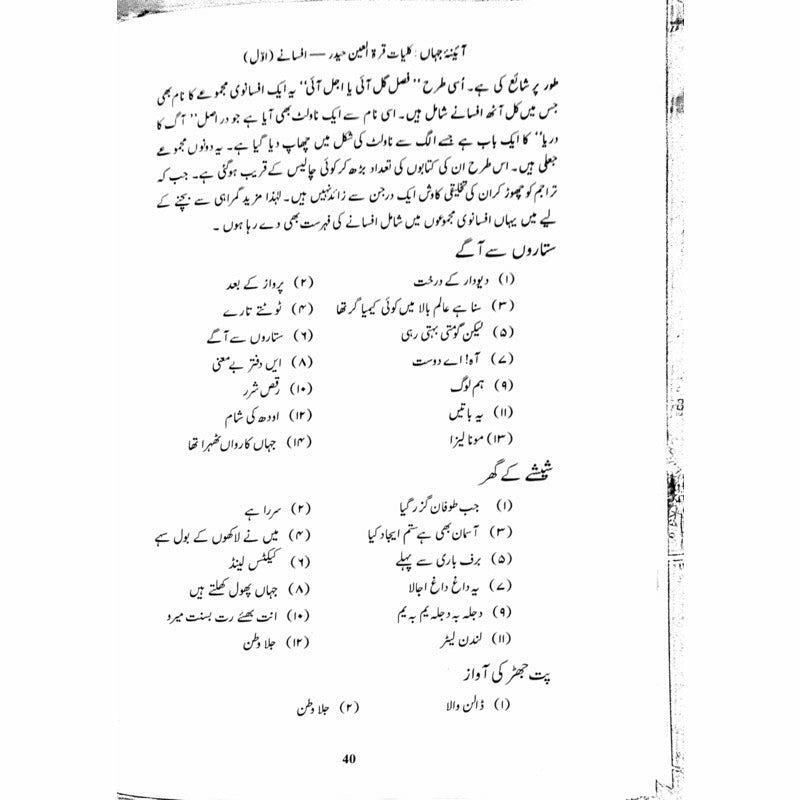 آئینۂ جہاں : کلیات قرۃ العین حیدر — افسانے (اوّل)
طور پر شائع کی ہے۔ اُسی طرح ’’ فصل گل آئی یا اجل آئی‘‘ یہ ایک افسانوی مجموعے کا نام بھی
جس میں کل آٹھ افسانے شامل ہیں۔ اسی نام سے ایک ناولٹ بھی آیا ہے جو دراصل ’’آگ کا
دریا‘‘ کا ایک باب ہے جسے الگ سے ناولٹ کی شکل میں چھاپ دیا گیا ہے۔ یہ دونوں مجموعے
جعلی ہیں۔ اس طرح ان کی کتابوں کی تعداد بڑھ کر کوئی چالیس کے قریب ہوگئی ہے۔ جب کہ
تراجم کو چھوڑ کر ان کی تخلیقی کاوش ایک درجن سے زائد نہیں ہیں۔ لہٰذا مزید گمراہی سے بچنے کے
لیے میں یہاں افسانوی مجموعوں میں شامل افسانے کی فہرست بھی دے رہا ہوں۔
ستاروں سے آگے
(۱) دیودار کے درخت (۲) پرواز کے بعد
(۳) سنا ہے عالم بالا میں کوئی کیمیا گر تھا (۴) ٹوٹتے تارے
(۵) لیکن گومتی بہتی رہی (۶) ستاروں سے آگے
(۷) آہ! اے دوست (۸) ایں دفتر بے معنی
(۹) ہم لوگ (۱۰) رقص شرر
(۱۱) یہ باتیں (۱۲) اودھ کی شام
(۱۳) مونا لیزا (۱۴) جہاں کارواں ٹھہرا تھا
شیشے کے گھر
(۱) جب طوفان گزر گیا (۲) سرراہے
(۳) آسمان بھی ہے ستم ایجاد کیا (۴) میں نے لاکھوں کے بول سہے
(۵) برف باری سے پہلے (۶) کیکٹس لینڈ
(۷) یہ داغ داغ اجالا (۸) جہاں پھول کھلتے ہیں
(۹) دجلہ بہ دجلہ یم بہ یم (۱۰) انت بھئے رت بسنت میرو
(۱۱) لندن لیٹر (۱۲) جلا وطن
پت جھڑ کی آواز
(۱) ڈالن والا (۲) جلا وطن
40